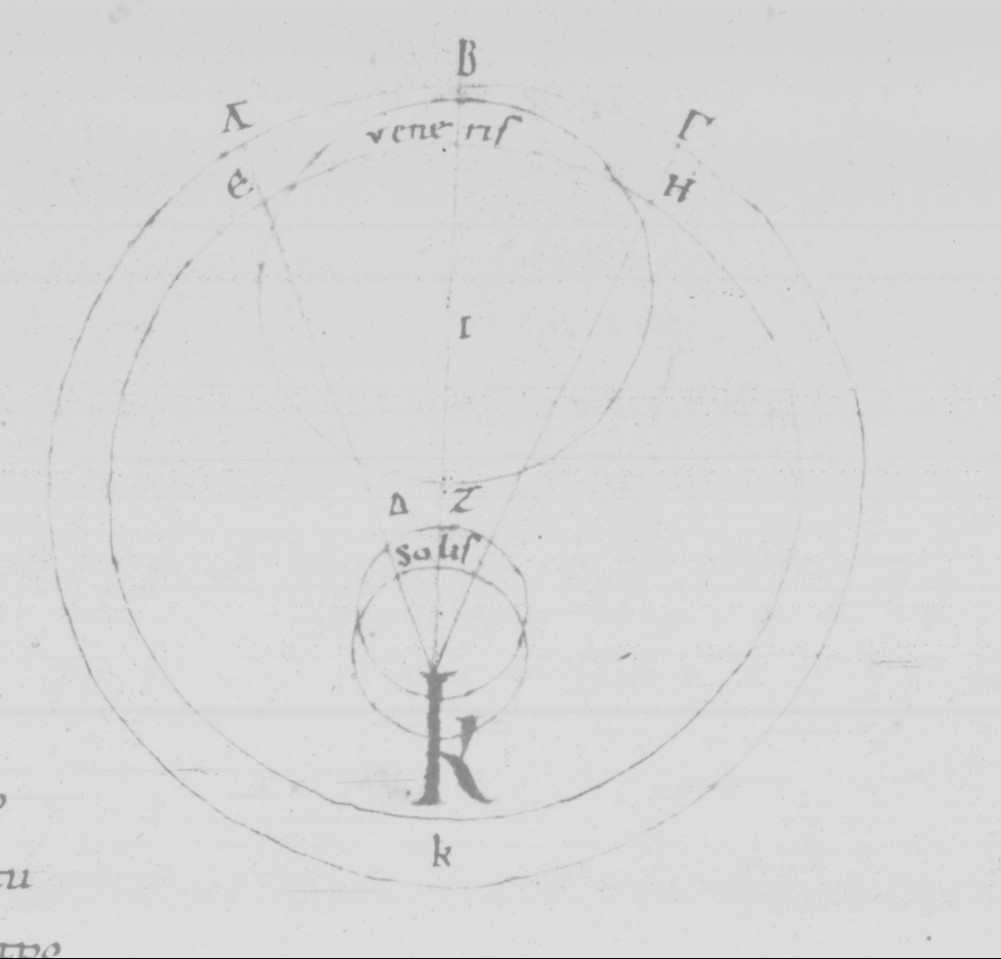 B
Α Γ
veneris
e H
I
Δ Z
solis
K
k
tu